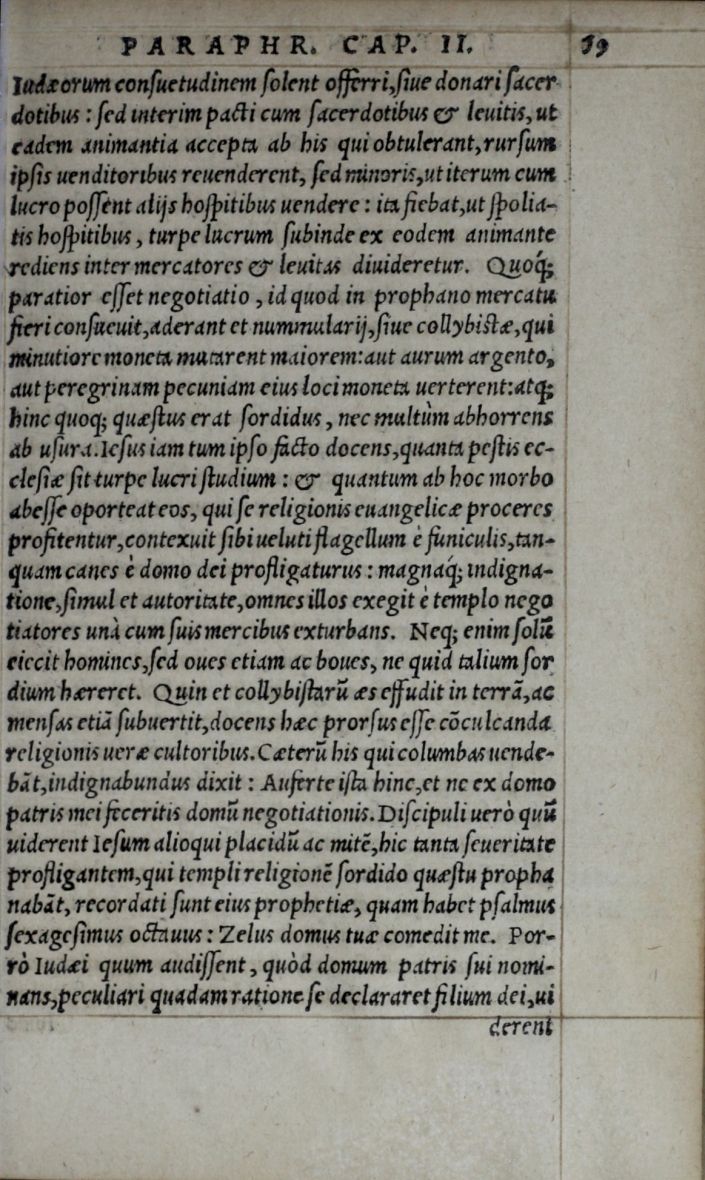 PARAPHR. CAP. II. 59
Iudæorum conſuetudinem ſolent offerri, ſiue donari ſacer
dotibus : ſed interim pacti cum ſacerdotibus & leuitis, ut
eadem animantia accepta ab his qui obtulerant, rurſum
ipſis uenditoribus reuenderent, ſed minoris, ut iterum cum
lucro poſſent alijs hoſpitibus uendere : ita fiebat, ut ſpolia-
tis hoſpitibus, turpe lucrum ſubinde ex eodem animante
rediens inter mercatores & leuitas diuideretur. Quoq́;
paratior eſſet negotiatio, id quod in prophano mercatu
fieri conſueuit, aderant et nummularij, ſiue collybiſtæ, qui
minutiore moneta mutarent maiorem: aut aurum argento,
aut peregrinam pecuniam eius loci moneta uerterent: atq;
hinc quoq; quæſtus erat ſordidus, nec multùm abhorrens
ab uſura. Ieſus iam tum ipſo facto docens, quanta peſtis ec-
cleſiæ ſit turpe lucri ſtudium : & quantum ab hoc morbo
abeſſe oporteat eos, qui ſe religionis euangelicæ proceres
profitentur, contexuit ſibi ueluti flagellum è funiculis, tan-
quam canes è domo dei profligaturus : magnaq́; indigna-
tione, ſimul et autoritate, omnes illos exegit è templo nego
tiatores unà cum ſuis mercibus exturbans. Neq; enim ſolũ
eiecit homines, ſed oues etiam ac boues, ne quid talium ſor
dium hæreret. Quin et collybiſtarũ æs effudit in terrã, ac
menſas etiã ſubuertit, docens hæc prorſus eſſe cõculcanda
religionis ueræ cultoribus. Cæterũ his qui columbas uende-
bãt, indignabundus dixit : Auferte iſta hinc, et ne ex domo
patris mei feceritis domũ negotiationis. Diſcipuli uerò quũ
uiderent Ieſum alioqui placidũ ac mitẽ, hic tanta ſeueritate
profligantem, qui templi religionẽ ſordido quæſtu propha
nabãt, recordati ſunt eius prophetiæ, quam habet pſalmus
ſexageſimus octauus : Zelus domus tuæ comedit me. Por-
rò Iudæi quum audiſſent, quòd domum patris ſui nomi-
nans, peculiari quadam ratione ſe declararet filium dei, ui
derent